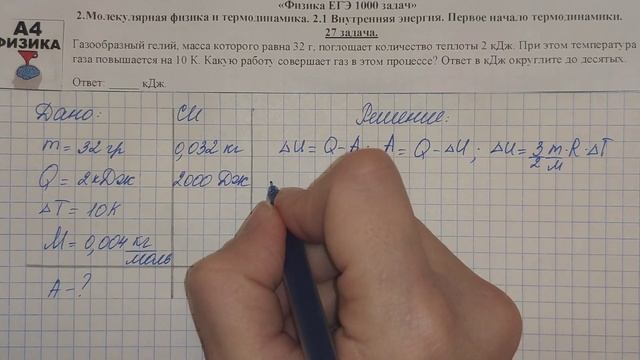 «Физика ЕГЭ 1000 задач»
2.Молекулярная физика и термодинамика. 2.1 Внутренняя энергия. Первое начало термодинамики.
27 задача.
А4
ФИЗИКА
Газообразный гелий, масса которого равна 32 г, поглощает количество теплоты 2 кДж. При этом температура
газа повышается на 10 К. Какую работу совершает газ в этом процессе? Ответ в кДж округлите до десятых.
Ответ: _____ кДж.
Дано: СИ Решение:
m = 32 гр 0,032 кг ΔU = Q - A; A = Q - ΔU; ΔU = 3/2 m/M · R · ΔT
Q = 2 кДж 2000 Дж
ΔT = 10 К
M = 0,004 кг/моль
A - ?